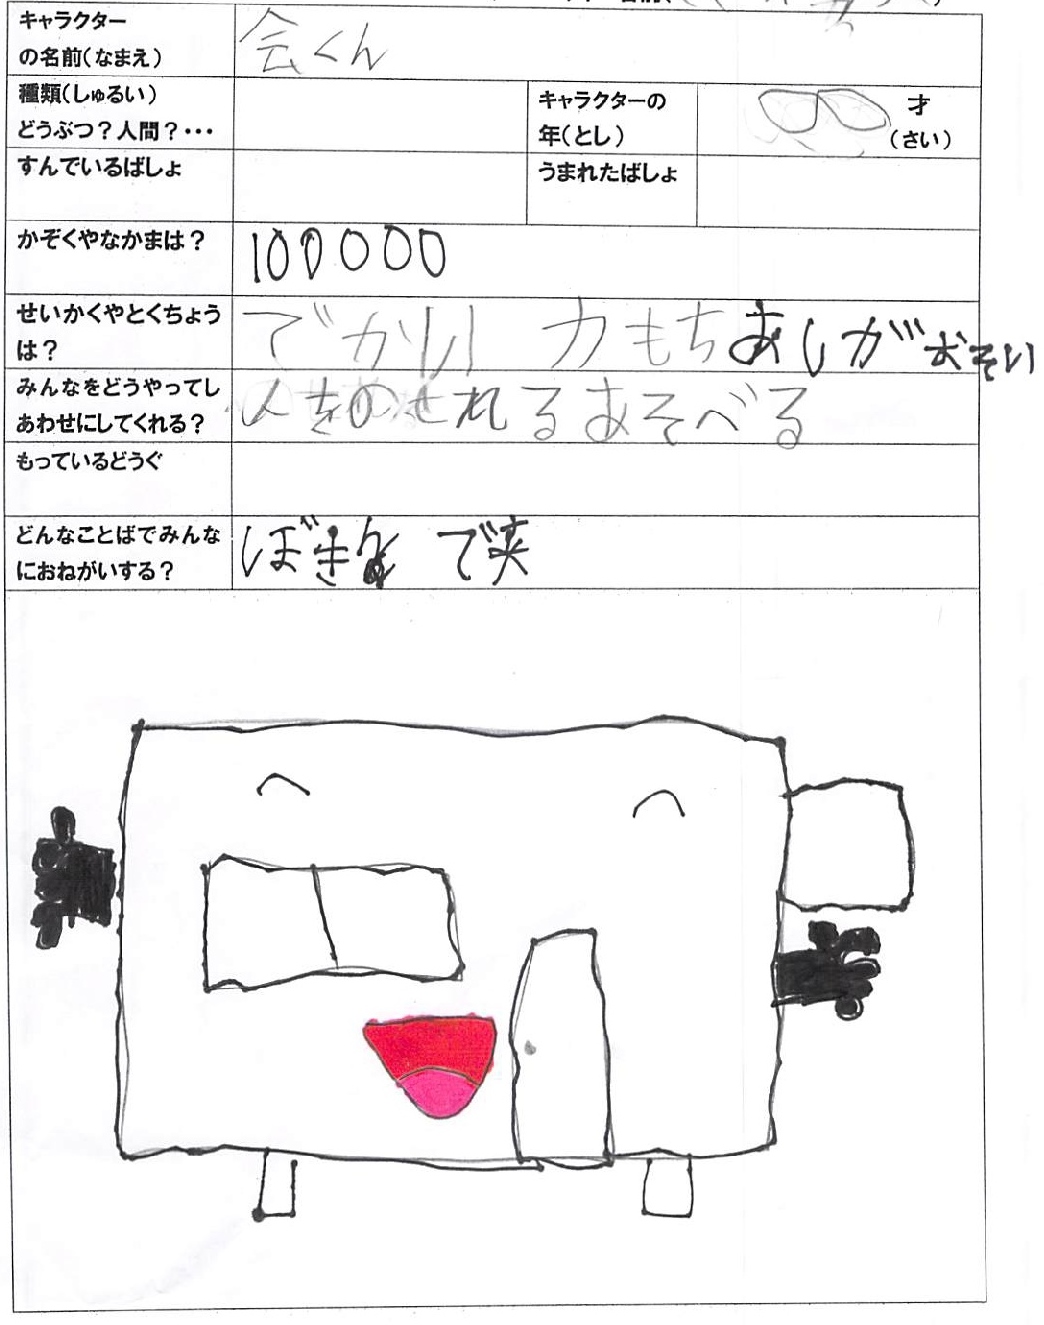 キャラクター
の名前(なまえ)
会くん
種類(しゅるい)
どうぶつ?人間?・・・
キャラクターの
年(とし)
才
(さい)
すんでいるばしょ
うまれたばしょ
かぞくやなかまは?
100000
せいかくやとくちょう
は?
でかい 力もちあしがおそい
みんなをどうやってし
あわせにしてくれる?
人をのせれるあそべる
もっているどうぐ
どんなことばでみんな
におねがいする?